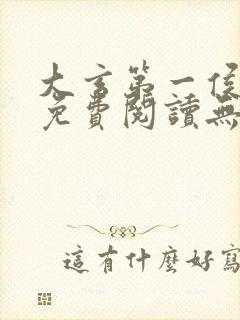 大言第一侯
免費閱讀無
這有什麼好寫